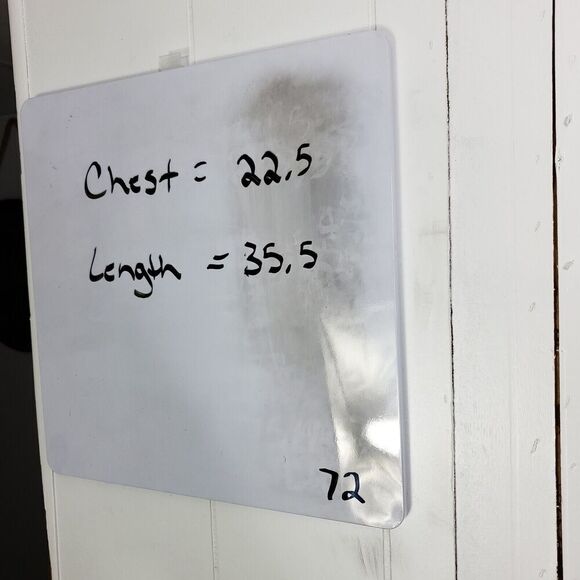 Chest = 22.5
Length = 35.5
72